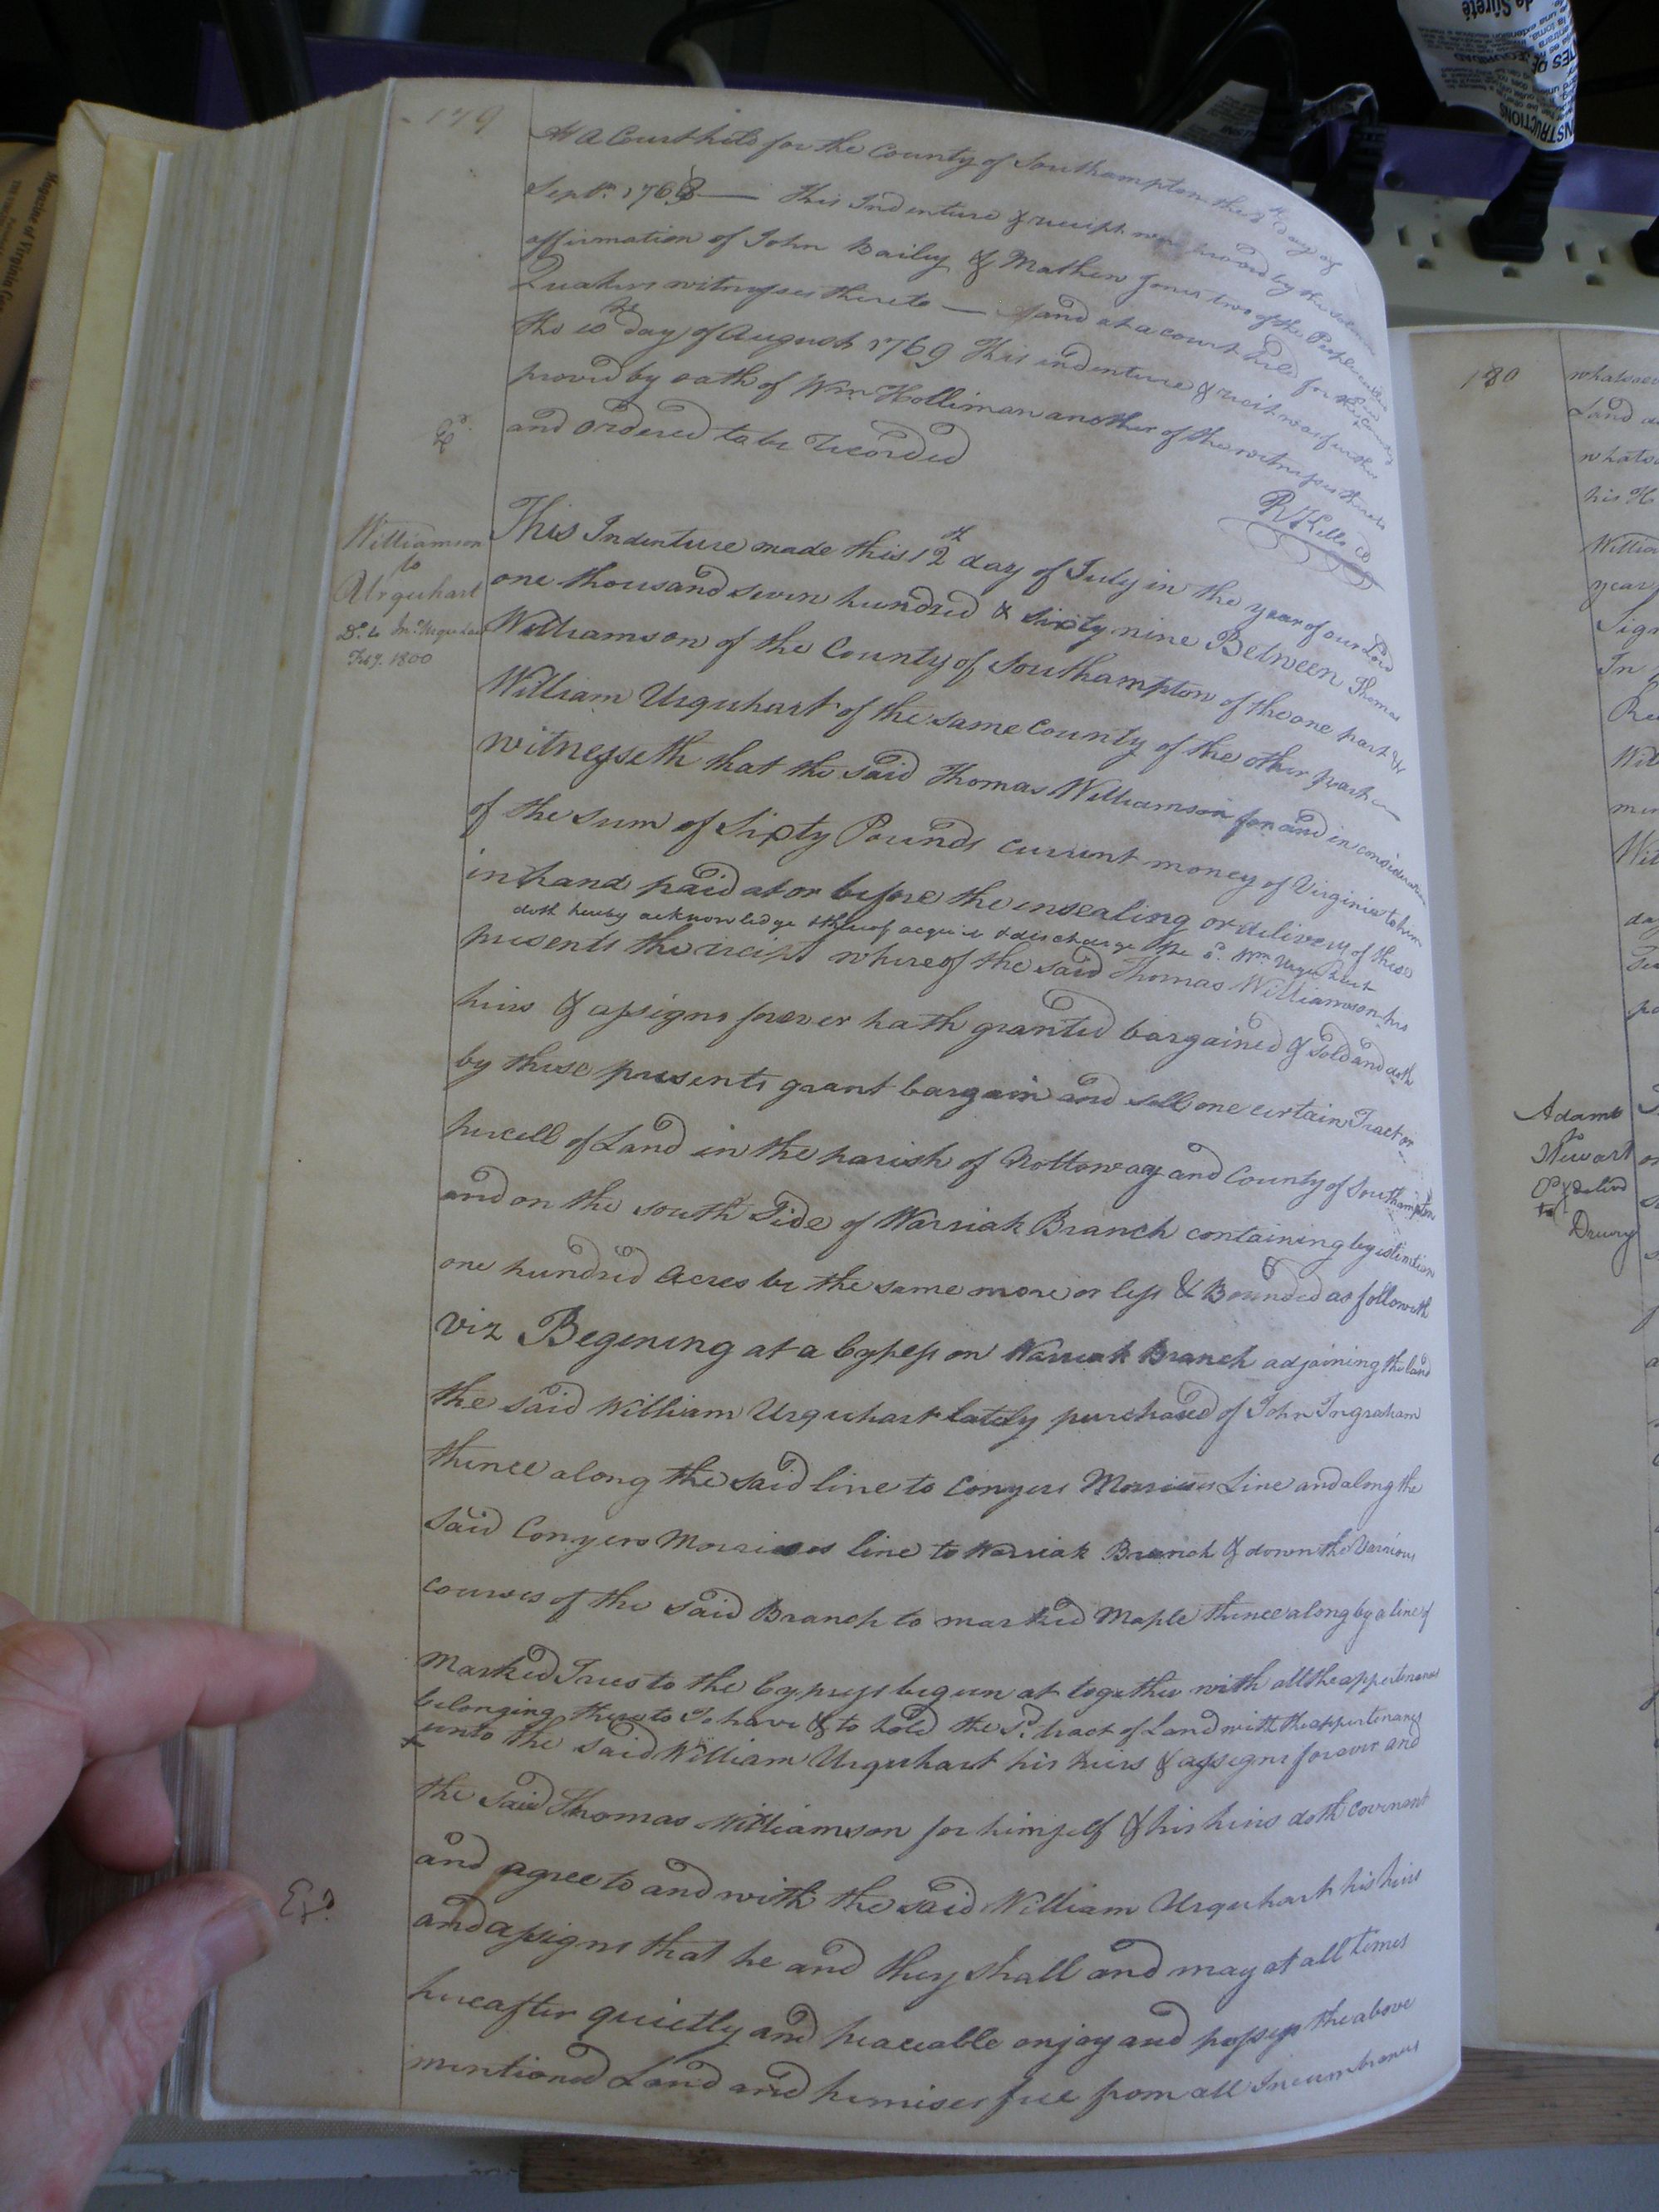 179
At a Court held for the County of Southampton the 8th day of
Septr. 1768 — This Indenture & receipt were proved by the solemn
affirmation of John Bailey & Mathew Jones two of the People called
Quakers witnesses thereto — And at a court held for the said County
the 10th day of August 1769 This indenture & recit was further
proved by oath of Wm Holliman another of the witnesses thereto
and Ordered to be Recorded
R Kello C
Williamson
to
Urquhart
Dd. to Jno. Urquhart
1800
This Indenture made this 12th day of July in the year of our Lord
one thousand seven hundred & sixty nine Between Thomas
Williamson of the County of Southampton of the one part &
William Urquhart of the same County of the other part
witnesseth that the said Thomas Williamson for and in consideration
of the Sum of Sixty Pounds current money of Virginia to him
in hand paid at or before the ensealing or delivery of these
doth hereby acknowledge & thereof acquit & discharge the sd. Wm Urquhart
presents the reciept whereof the said Thomas Williamson his
heirs & assigns forever hath granted bargained & Sold and doth
by these presents grant bargain and sell one certain Tract or
percell of Land in the parish of Nottoway and County of Southampton
and on the south Side of Warriak Branch containing by estimtion
one hundred Acres be the same more or less & Bounded as followeth
Viz Begening at a Cypess on Warriak Branch adjoining the land
the said William Urquhart lately purchased of John Ingraham
thence along the said line to Conyers Line and along the
said Conyers line to Warriak Branch & down the Various
courses of the said Branch to marked Maple thence along by a line of
Marked Trees to the Cypress begun at together with all the appertenances
belonging thereto To have & to hold the sd. tract of Land with the appertenances
unto the said William Urquhart his heirs & assigns forever and
the said Thomas Williamson for himself & his heirs doth covenant
and agree to and with the said William Urquhart his heirs
and assigns that he and they shall and may at all times
Ex.d
hereafter quietly and peaceable enjoy and possess the above
mentioned Land and premises free from all Incumbrances
180
Land
his
year
In
Adams
to
Stewart
to
Drury